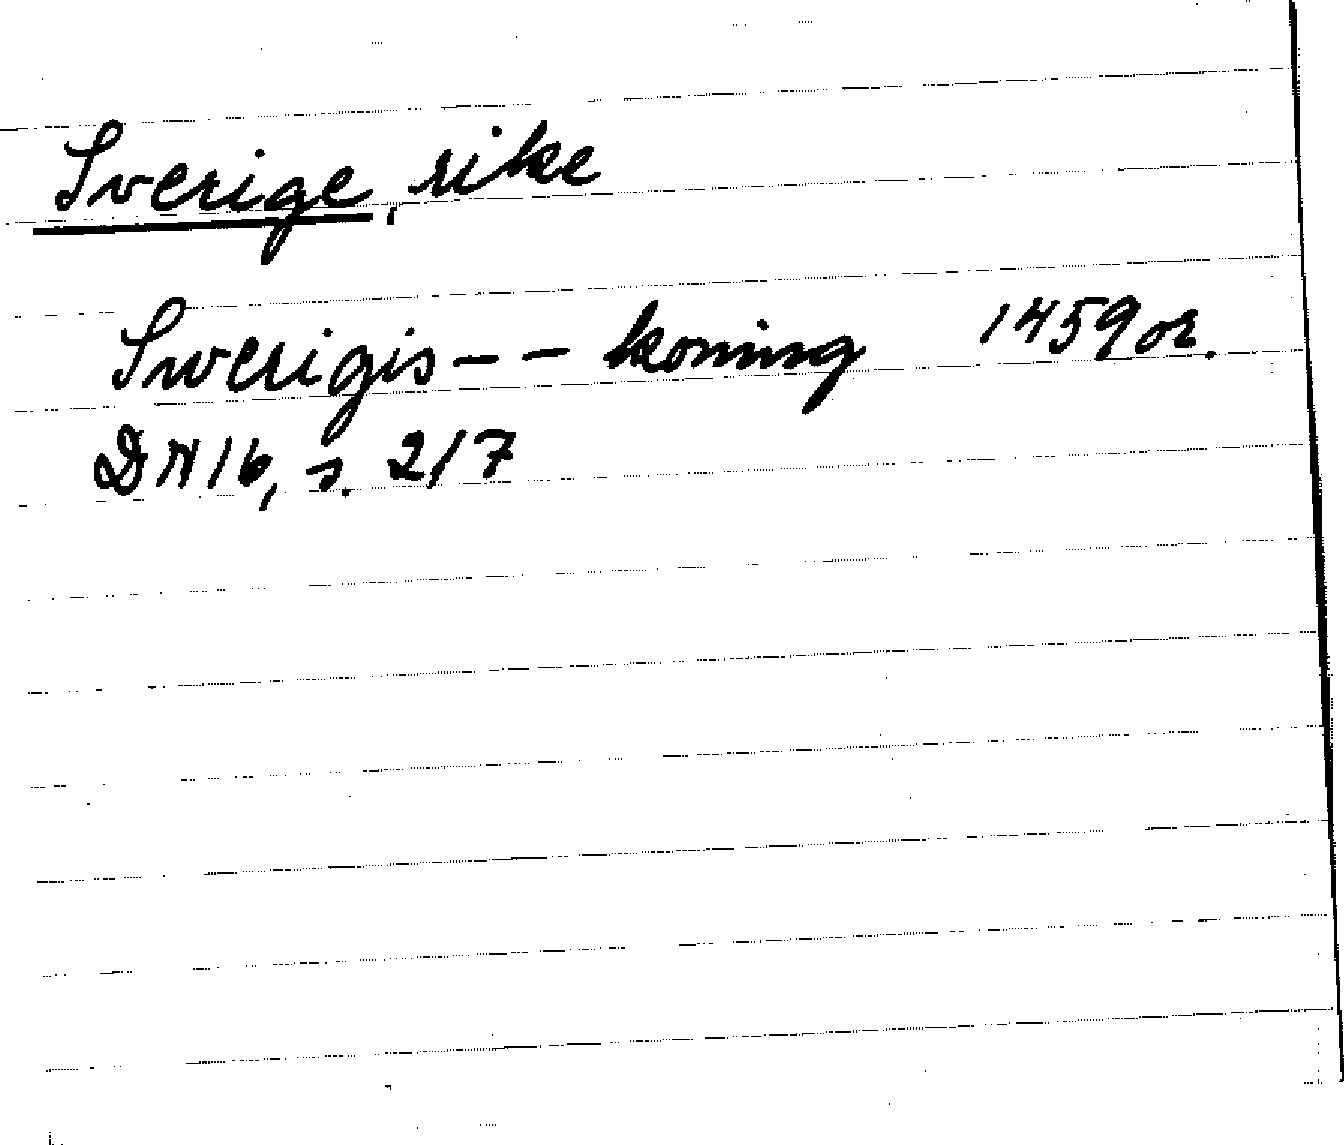 Sverige, rike
Swerigis -- koning 1459 or.
DN 16, s. 217